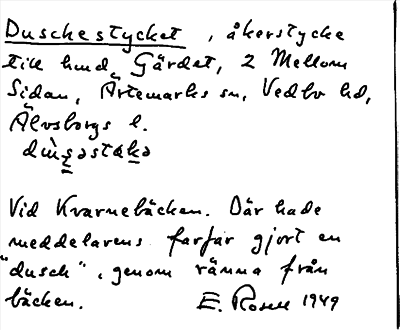 Duschestycket, åkerstycke
till hmd Gärdet, 2 Mellom
Sidan, Ärtemarks sn, Vedbo hd,
Älvsborgs l.

Vid Kvarnebäcken. Där hade
meddelarens farfar gjort en
"dusch", genom ränna från
bäcken. E. Rosell 1949